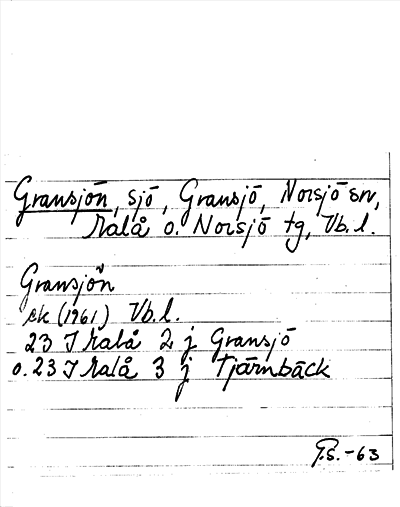 Gransjön, sjö, Gransjö, Norsjö sn,
Malå o. Norsjö tg, Vb. l.
Gransjön
ek (1961) Vb. l.
23 J Malå 2 j Gransjö
o. 23 J Malå 3 j Tjärnbäck
G.S. -63